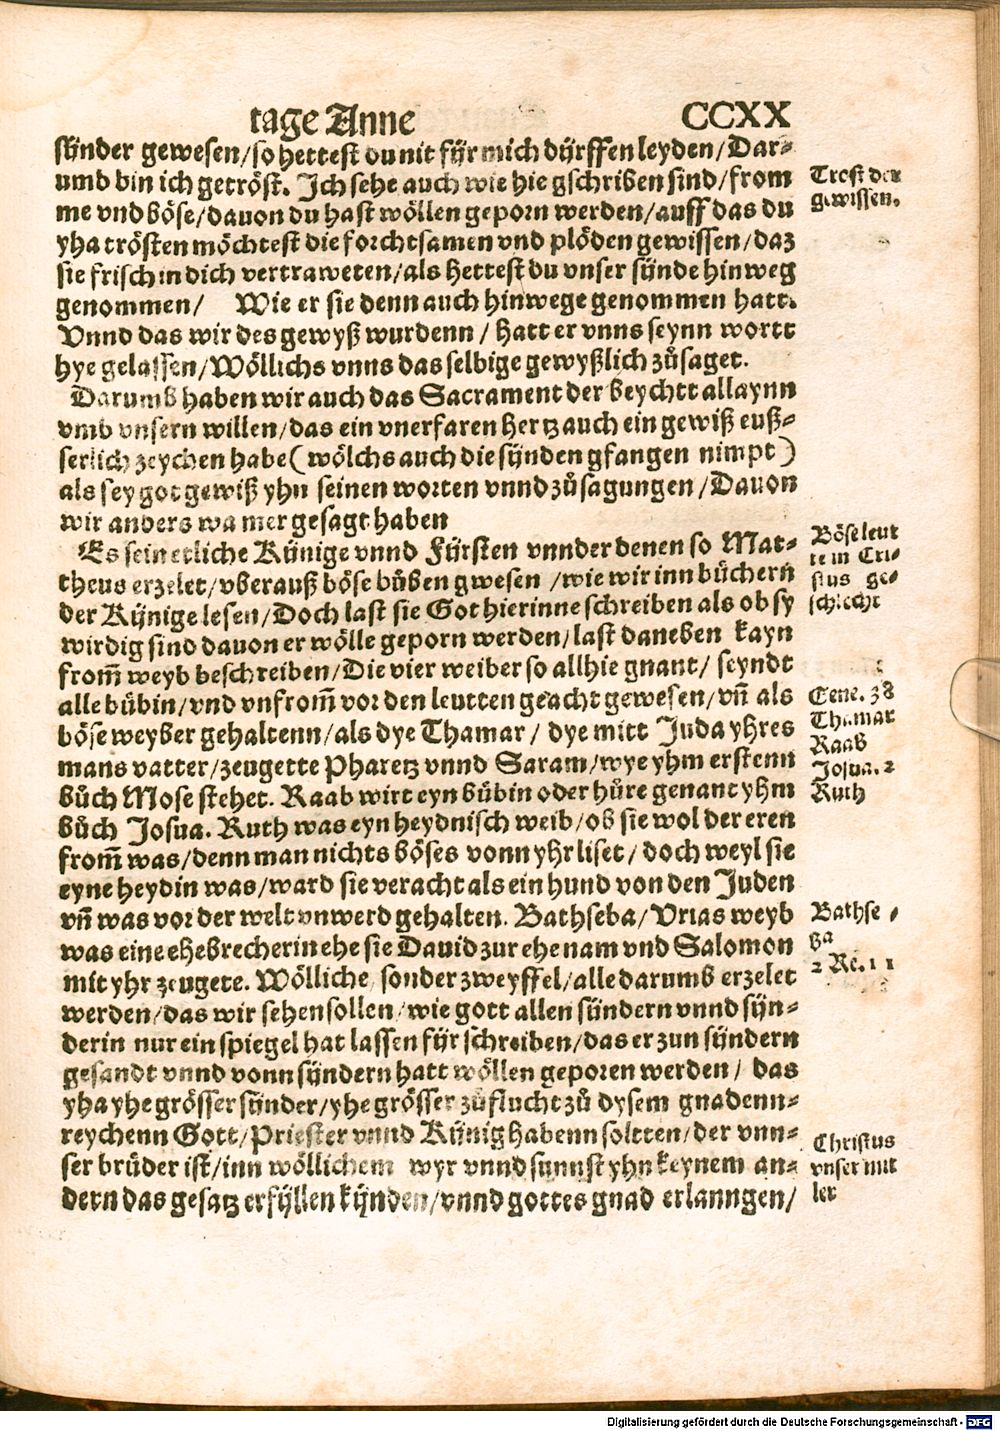 tage Anne CCXX
sünder gewesen/so hettest du nit für mich dürffen leyden/Dar-
umb bin ich getröst. Ich sehe auch wie hie gschriben sind/from
me vnd böse/dauon du hast wöllen geporn werden/auff das du
yha trösten möchtest die forchtsamen vnd plöden gewissen/daz
sie frisch in dich vertraweten/als hettest du vnser sünde hinweg
genommen/ Wie er sie denn auch hinwege genommen hatt.
Vnnd das wir des gewyß wurdenn/ hatt er vnns seynn wortt
hye gelassen/Wöllichs vnns das selbige gewyßlich zůsaget.
Darumb haben wir auch das Sacrament der beychtt allaynn
vmb vnsern willen/das ein vnerfaren hertz auch ein gewiß euß-
serlich zeychen habe(wölchs auch die sünden gfangen nimpt)
als sey got gewiß yhn seinen worten vnnd zůsagungen/Dauon
wir anders wa mer gesagt haben
Es sein etliche Künige vnnd Fürsten vnnder denen so Mat-
theus erzelet/vberauß böse bůben gwesen /wie wir inn büchern
der Künige lesen/Doch last sie Got hierinne schreiben als ob sy
wirdig sind dauon er wölle geporn werden/last daneben kayn
from̄ weyb beschreiben/Die vier weiber so allhie gnant/ seyndt
alle bübin/vnd vnfrom̄ vor den leutten geacht gewesen/vn̄ als
böse weyber gehaltenn/als dye Thamar/ dye mitt Juda yhres
mans vatter/zeugette Pharetz vnnd Saram/wye yhm erstenn
bůch Mose stehet. Raab wirt eyn bübin oder hůre genant yhm
bůch Josua. Ruth was eyn heydnisch weib/ob sie wol der eren
from̄ was/denn man nichts böses vonn yhr liset/ doch weyl sie
eyne heydin was/ward sie veracht als ein hund von den Juden
vn̄ was vor der welt vnwerd gehalten. Bathseba/Vrias weyb
was eine ehebrecherin ehe sie Dauid zur ehe nam vnd Salomon
mit yhr zeugete. Wölliche sonder zweyffel/alle darumb erzelet
werden/das wir sehen sollen/wie gott allen sündern vnnd sün-
derin nur ein spiegel hat lassen für schreiben/das er zun sündern
gesandt vnnd vonn sündern hatt wöllen geporen werden/ das
yha yhe grösser sünder/yhe grösser zůflucht zů dysem gnadenn-
reychenn Gott/Priester vnnd Künig habenn soltten/der vnn-
ser brüder ist/inn wöllichem wyr vnnd sunnst yhn keynem an-
dern das gesatz erfüllen künden/vnnd gottes gnad erlanngen/
Trost der
gewissen.
Böse leut
te in Cri-
stus ge-
schlecht
Gene. 38
Thamar
Raab
Josua. 2
Ruth
Bathse-
ba
2 Re. 11
Christus
vnser mit
ler
Digitalisierung gefördert durch die Deutsche Forschungsgemeinschaft - DFG